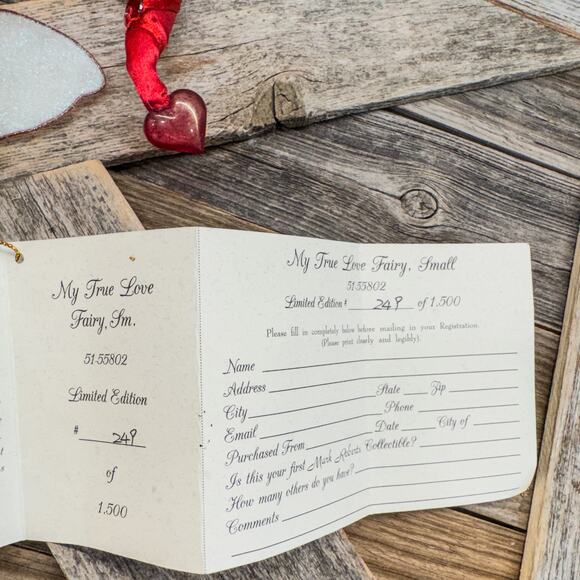 My True Love
Fairy, Sm.
51-55802
Limited Edition
# 249
of
1.500
My True Love Fairy, Small
51-55802
Limited Edition # 249 of 1.500
Please fill in completely below before mailing in your Registration.
(Please print clearly and legibly).
Name
Address State Zip
City Phone
Email Date City of
Purchased From
Is this your first Mark Roberts Collectible?
How many others do you have?
Comments